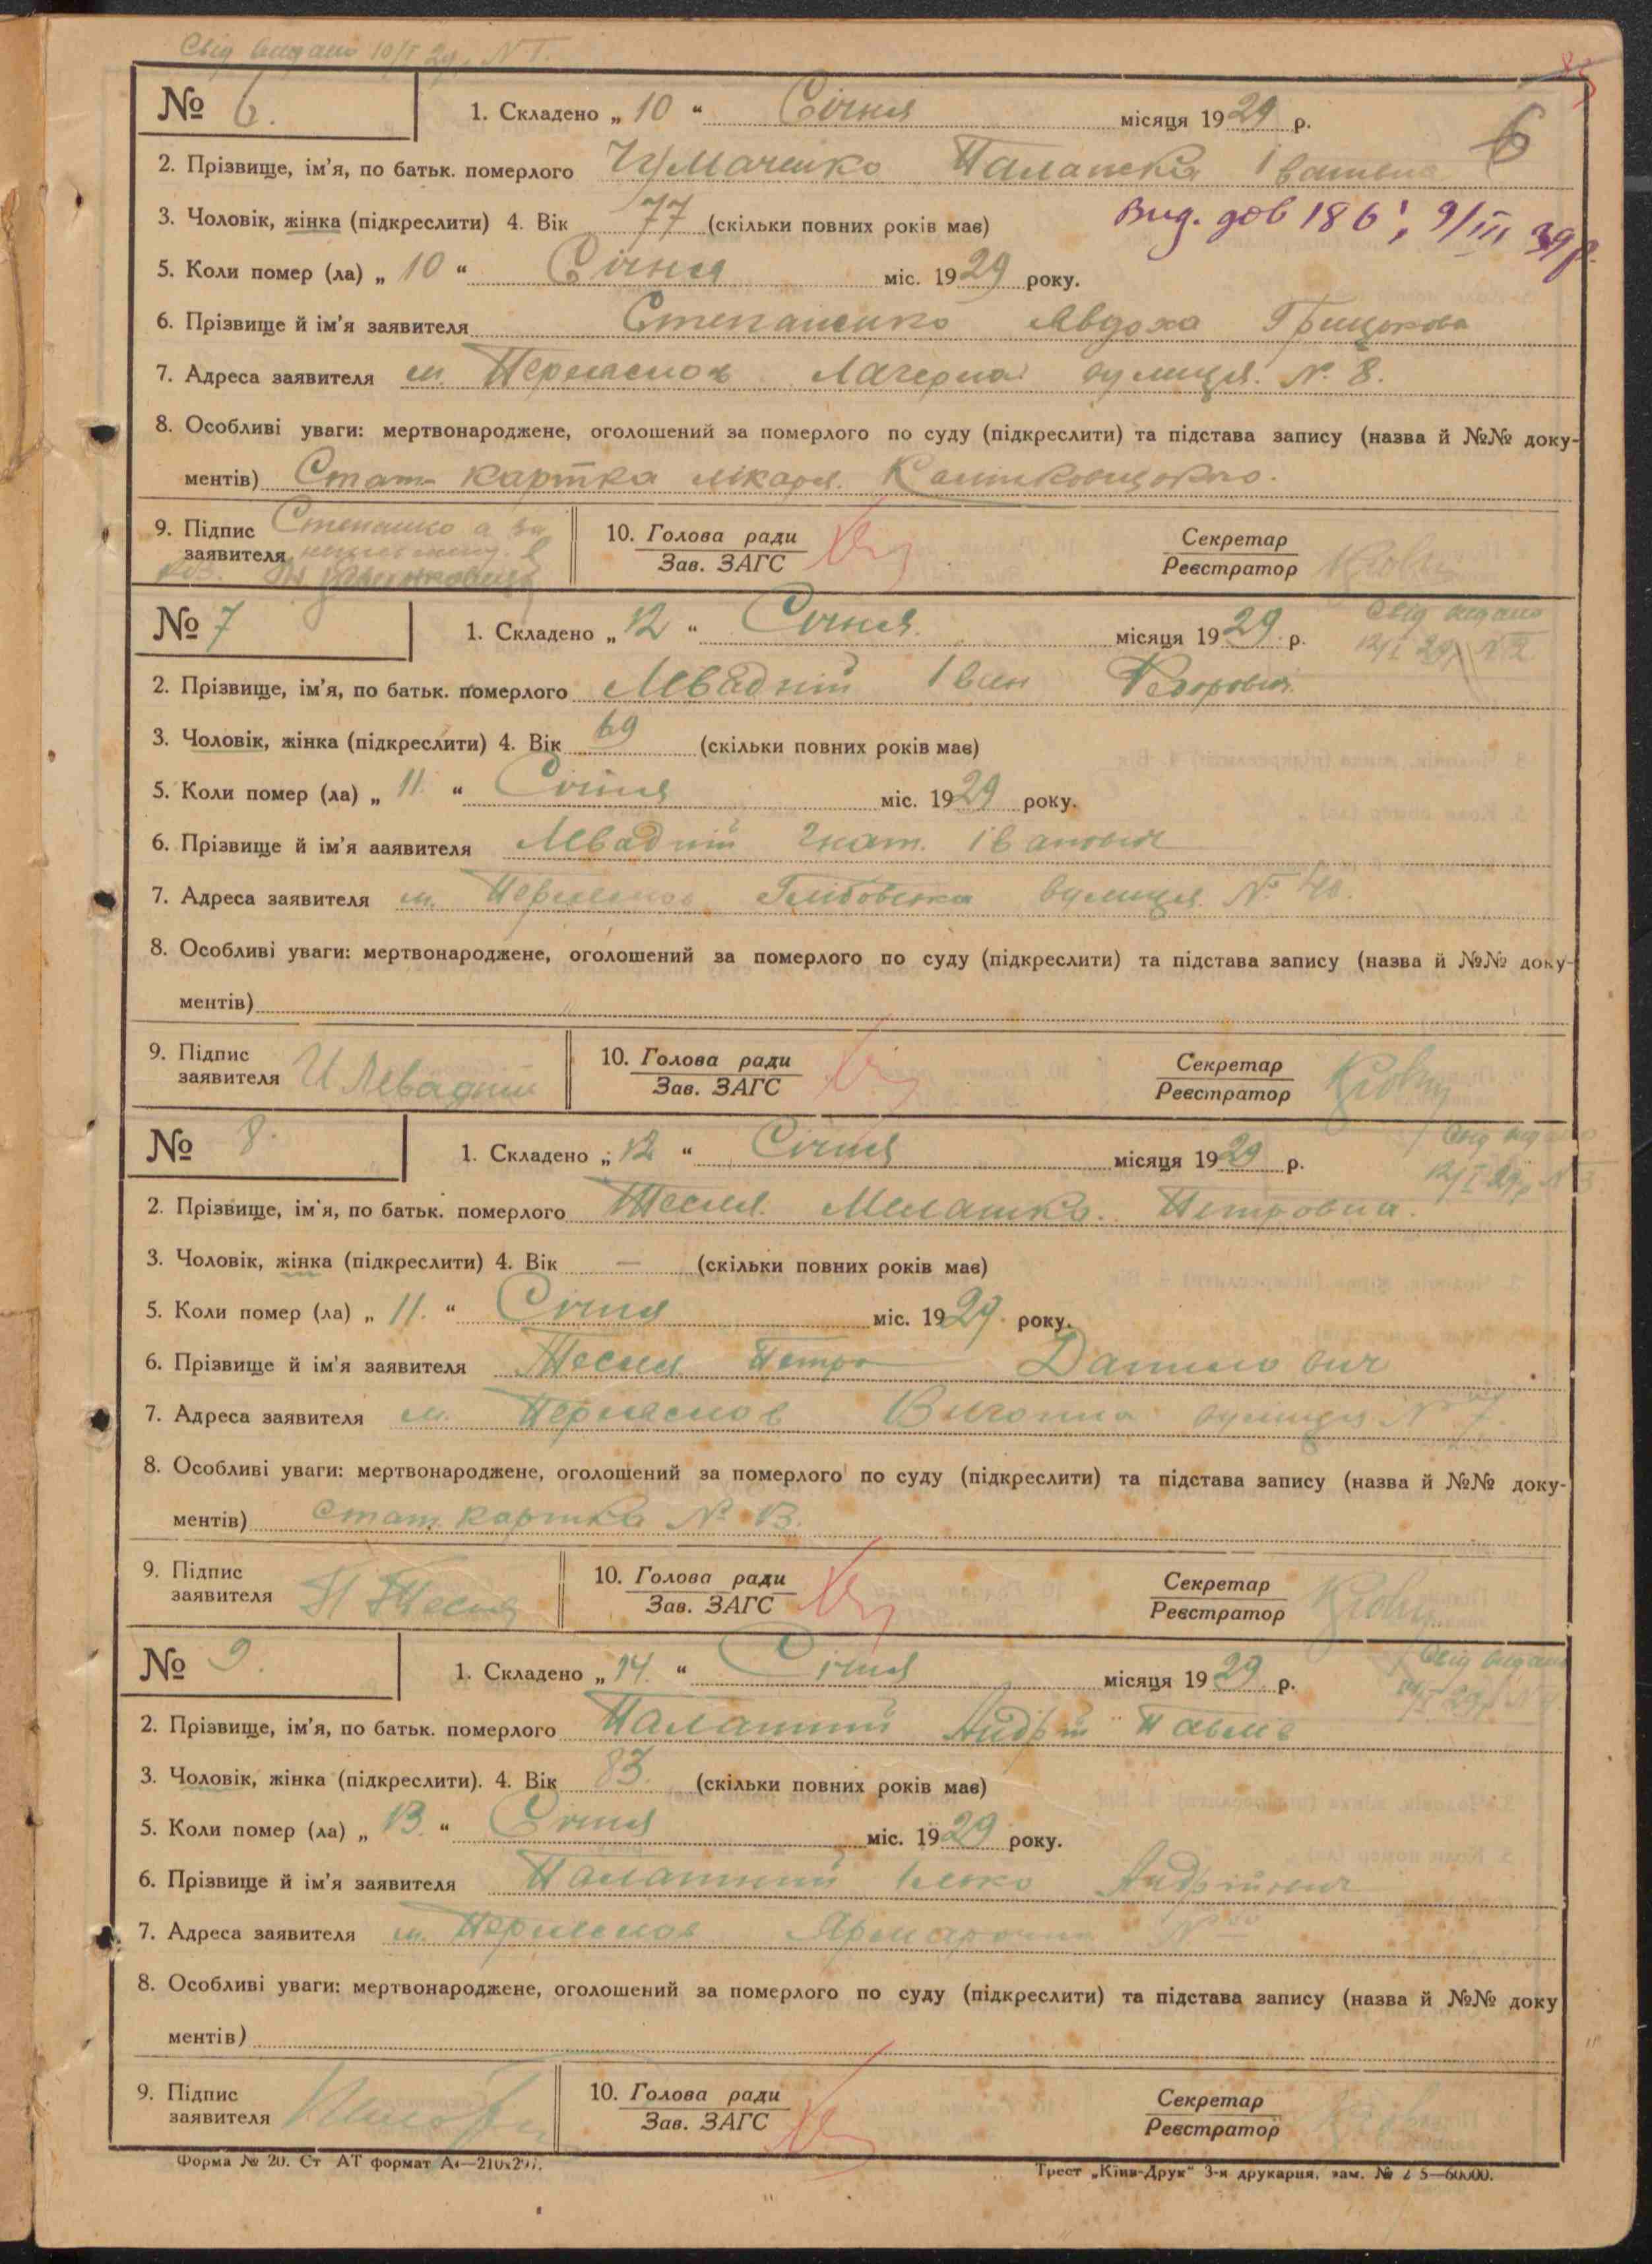 Свід видано 10/I 29р. № 1.
№ 6. 1. Складено „ 10 “ Січня місяця 1929 р.
6
2. Прізвище, ім'я, по батьк. померлого Чумаченко Палажка Івановна
3. Чоловік, жінка (підкреслити) 4. Вік 77 (скільки повних років має)
Вид. дов 186; 9/III 39р.
5. Коли помер (ла) „ 10 “ Січня міс. 1929 року.
6. Прізвище й ім'я заявителя Степаненко Явдоха Грицькова
7. Адреса заявителя м. Переяслов Лагерна вулиця. №. 8.
8. Особливі уваги: мертвонароджене, оголошений за померлого по суду (підкреслити) та підстава запису (назва й №№ доку-
ментів) Стат- картка лікаря.
9. Підпис
заявителя
10. Голова ради
Зав. ЗАГС
Секретар
Реєстратор
№ 7 1. Складено „ 12 “ Січня. місяця 1929 р.
Свід видано
12/I 29р № 2.
2. Прізвище, ім'я, по батьк. померлого Левадній Іван Федорович
3. Чоловік, жінка (підкреслити) 4. Вік 69 (скільки повних років має)
5. Коли помер (ла) „ 11. “ Січня міс. 1929 року.
6. Прізвище й ім'я ааявителя Левадній Гнат. Іванович
7. Адреса заявителя м. Переяслов вулиця №
8. Особливі уваги: мертвонароджене, оголошений за померлого по суду (підкреслити) та підстава запису (назва й №№ доку-
ментів)
9. Підпис
заявителя И Левадній
10. Голова ради
Зав. ЗАГС
Секретар
Реєстратор
№ 8. 1. Складено „ 12 “ Січня місяця 1929 р.
Свід видано
12/I 29р № 3.
2. Прізвище, ім'я, по батьк. померлого Тесля. Мелашка. Петровна.
3. Чоловік, жінка (підкреслити) 4. Вік — (скільки повних років має)
5. Коли помер (ла) „ 11. “ Січня міс. 1929. року.
6. Прізвище й ім'я заявителя Тесля Петро Данилович
7. Адреса заявителя м. Переяслов Вигонна вулиця №
8. Особливі уваги: мертвонароджене, оголошений за померлого по суду (підкреслити) та підстава запису (назва й №№ доку-
ментів) Стат. картка № 13.
9. Підпис
заявителя П Тесля
10. Голова ради
Зав. ЗАГС
Секретар
Реєстратор
№ 9. 1. Складено „ 14. “ Січня місяця 1929 р.
Свід видано
14/I 29р №
2. Прізвище, ім'я, по батьк. померлого Палатний Андрій
3. Чоловік, жінка (підкреслити). 4. Вік 83. (скільки повних років має)
5. Коли помер (ла) „ 13. “ Січня міс. 1929 року.
6. Прізвище й ім'я заявителя Палатний Андрійович
7. Адреса заявителя м. Переяслов Ярмарочна №
8. Особливі уваги: мертвонароджене, оголошений за померлого по суду (підкреслити) та підстава запису (назва й №№ доку
ментів)
9. Підпис
заявителя
10. Голова ради
Зав. ЗАГС
Секретар
Реєстратор
Форма № 20. Ст АТ формат А4—210х297.
Трест „Київ-Друк“ 3-я друкарня, зам. №